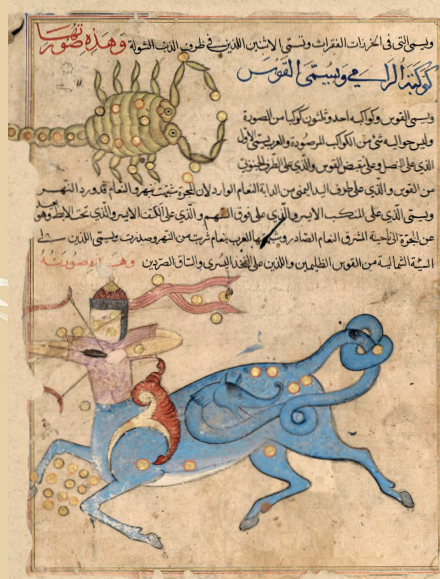 ويسمى التي في الخرزات الفقرات وتسمى الاثنين اللذين في طرف الذنب الشولة وهذه صورتها
كوكبة الرامي ويسمى القوس
ويسمى القوس وكواكبه احد وثلثون كوكبا من الصورة
وليس حواليه شئ من الكواكب المرصودة والعرب تسمى الاول
الذي على النصل والذي على مقبض القوس والذي على الطرف الجنوبي
من القوس والذي على طرف اليد اليمنى من الدابة النعام الوارد لان المجرة شبهت بنهر والنعام قد ورد النهر
ويسمى الذي على المنكب الايسر والذي على فوق السهم والذي على الكتف الايسر والذي تحت الابط وهو
عن المجرة الى ناحية المشرق النعام الصادر بنعام شربت من النهر وصدرت ويسمى اللذين على
السية الشمالية من القوس الظليمين واللذين على الفخذ اليسرى والساق الصردين وهذه صورته